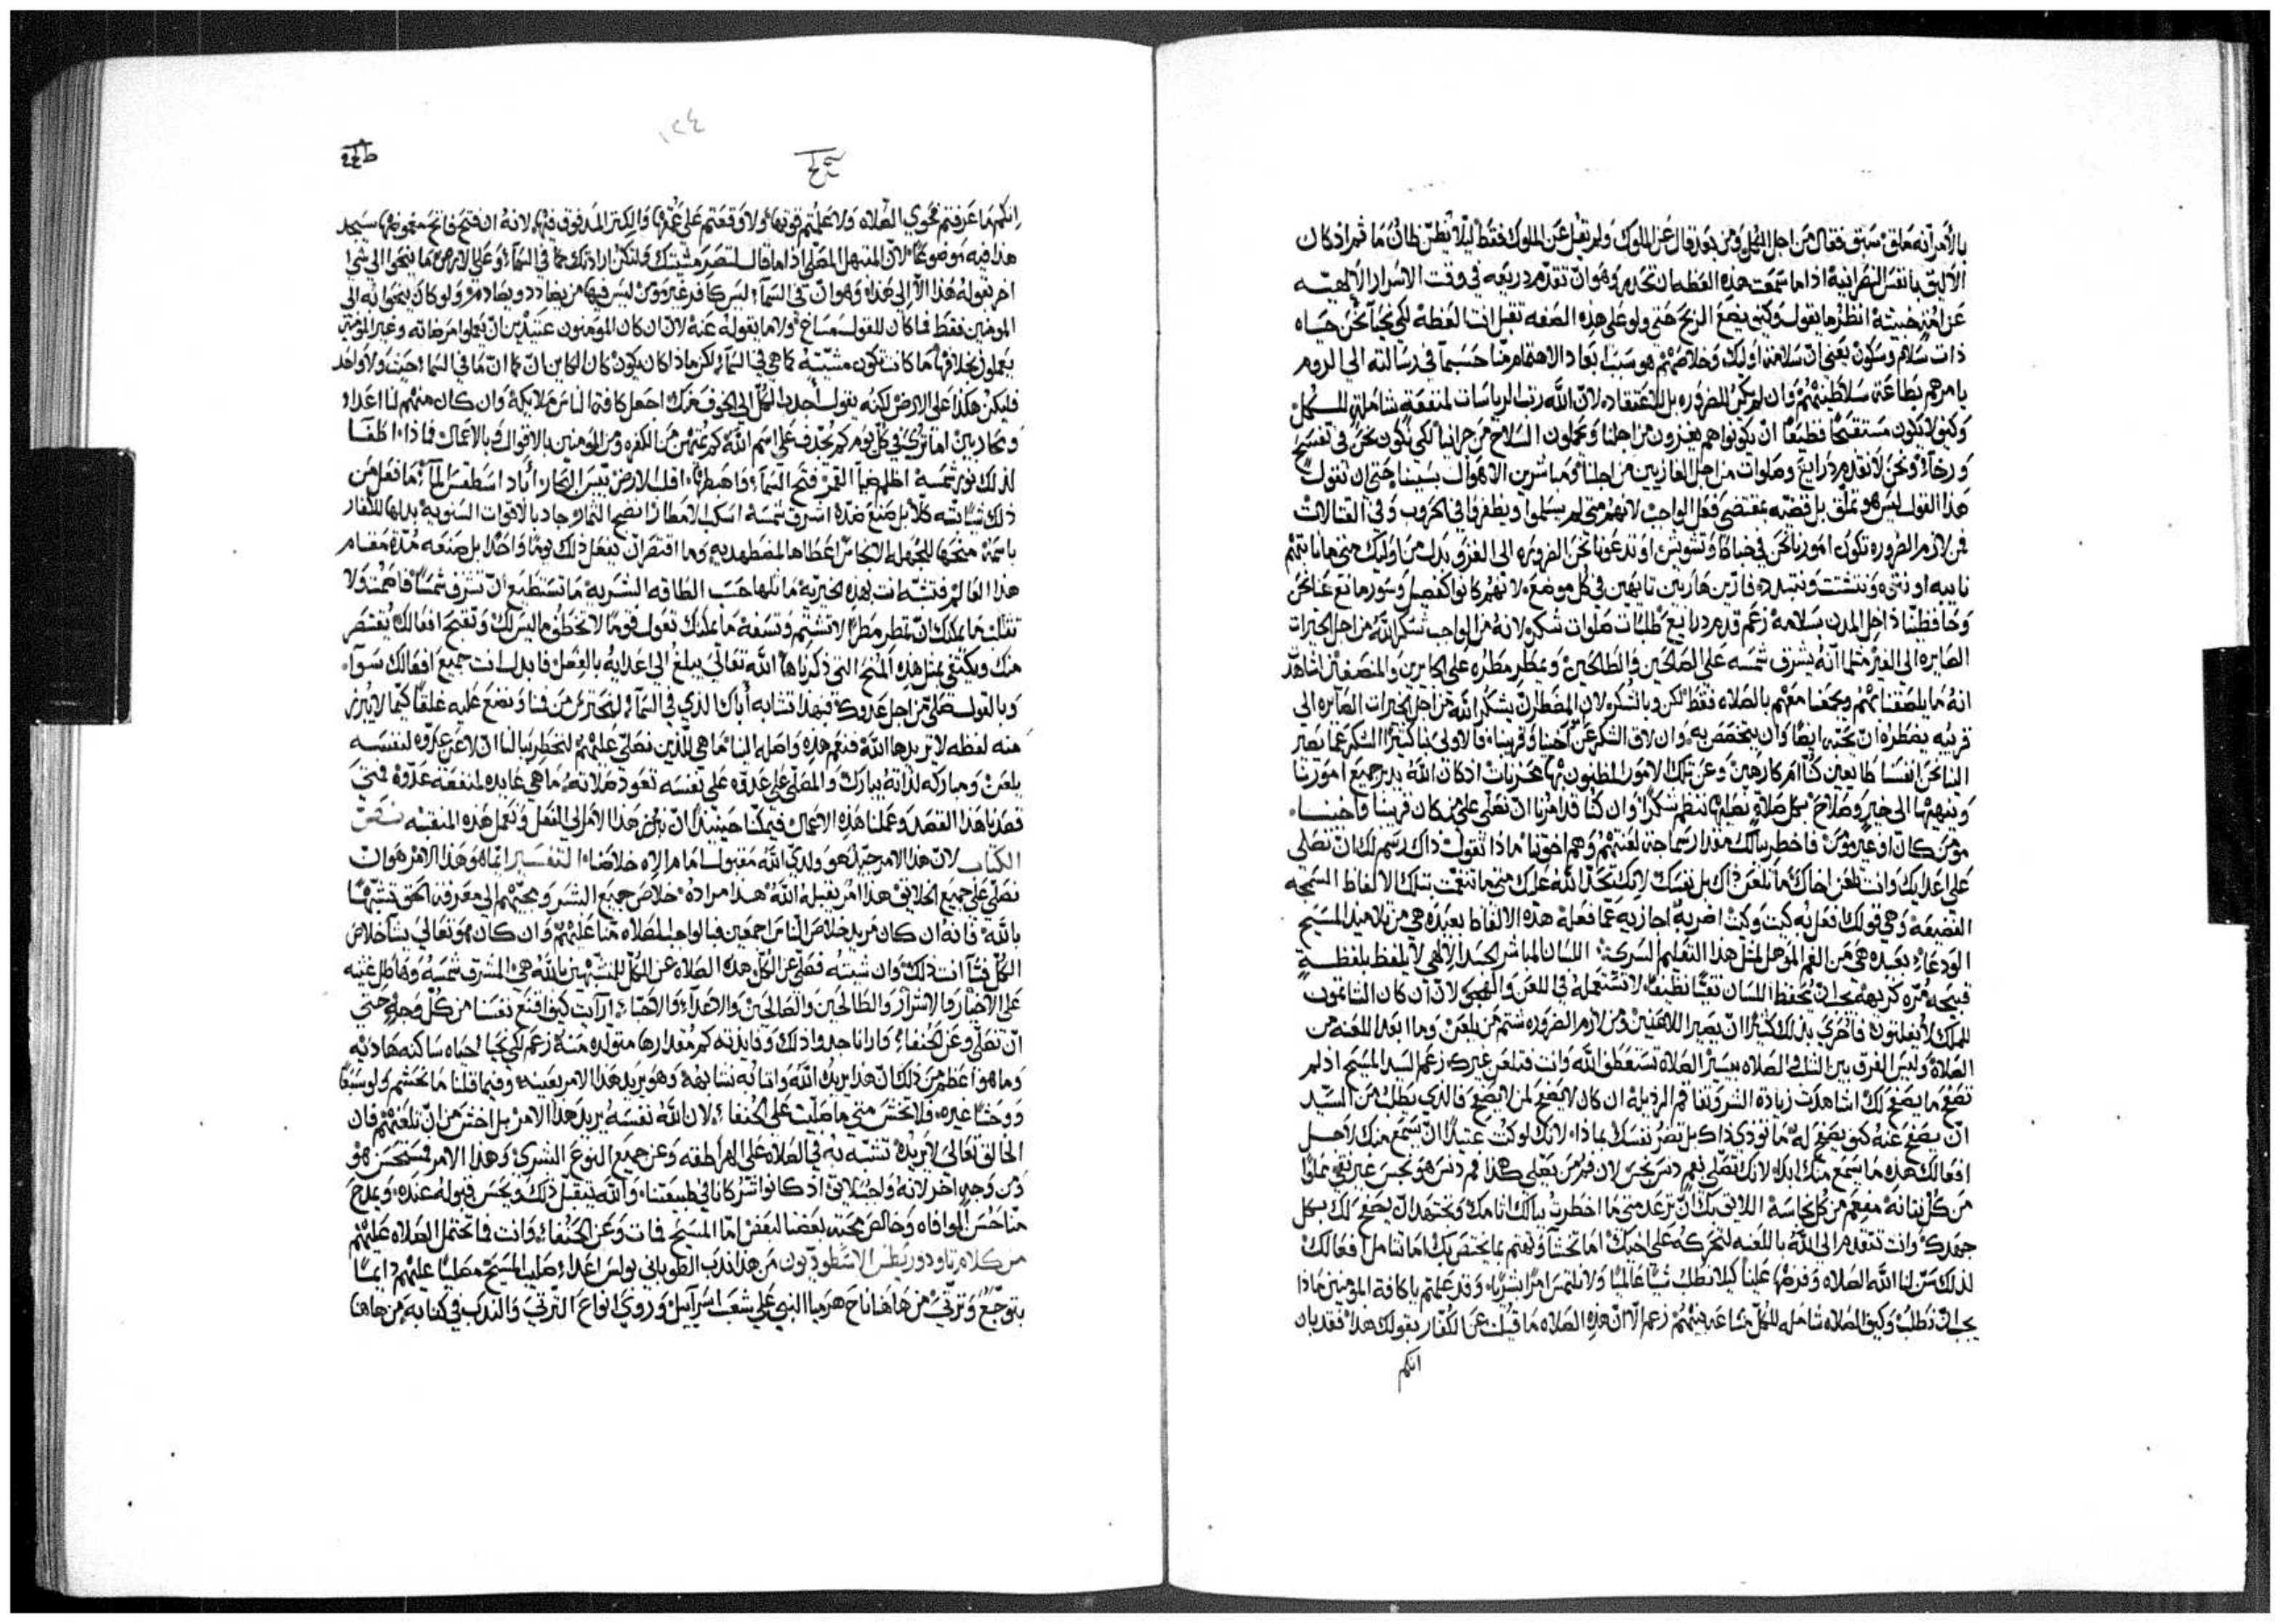 بالأمر انه ملق سبق فقال من اجل الكل ومن بعد قال عن الملوك ولم يقل عن الملوك فقط ليلا يظن ظان ما ثم اذ كان
الأليق بالنفس النصرانية اذا ما سمعت هذه اللفظه ان تحذر وهو ان تقدم ذريعه في وقت الاسرار الالهيه
عن انظر ما يقول وكيف يضع الربح حتى ولو على هذه الصفه تقبل انت لفظه لكي نحيا نحن حياه
ذات سلام وسكون يعني ان سلامة اوليك وخلاصهم هو سبب الاهتمام منا حسبما في رسالته الى الروم
يامرهم بطاعة سلاطينهم وان لم يكن للضروره بل للاعتقاد لان الله رتب الرياسات لمنفعة شاملة للكل
وكيف لا يكون مستقبحا فظيعا ان يكونوا هم يغزون من اجلنا ويحملون السلاح من لكي نكون نحن في تفسح
ورخاء ونحن لا نقدم ذرايع وصلوات من اجل الغازيين من اجلنا ومباشرين الاهوال بسببنا حتى ان تقول
هذا القول ليس هو تملق بل قضية بمقتضى فعل الواجب لانهم متى لم يسلموا ويظفروا في الحروب وفي القتالات
فمن لازم الضروره تكون امورنا نحن في وتشويش او تدعونا نحن الضروره الى الغزو بدل من اوليك
او نتيه ونتشتت ونتبدد فارين هاربين تايهين في كل موضع لانهم كانوا كفصيل وسور مانع عنا نحن
وحافظينا داخل المدن بسلامة زعم قدم ذرايع طلبات صلوات شكر لانه من الواجب شكر الله من اجل الخيرات
الصايره الى الغير مثلما انه يشرق شمسه على الصالحين والطالحين ويمطر مطره على الجايرين والمنصفين
انه ما يلصقنا بهم ويجمعنا معهم بالصلاه فقط لكن وبالشكر لان المضطر ان يشكر الله من اجل الخيرات الصايره الى
قريبه يضطر ان يحبه ايضا وان يتخصص به وان لاق الشكر عن اخينا وقريبنا فالاولى بنا كثيرا الشكر عما يصير
الينا نحن انفسنا طايعين كنا ام كارهين وعن تلك الامور المظنون بها محزنات اذ كان الله يدبر جميع امورنا
وينهيها الى خير وصلاح بكل صلاة نصليها شكرا وان كنا قد امرنا ان نصلي على من كان قريبنا واخينا
مؤمن كان او غير مؤمن فاخطر ببالك مقدار سماجة لعنتهم وهم اخوتنا ماذا تقول ذاك رسم لك ان تصلي
على اعدايك وانت تلعن اخاك ما تلعن ذاك بل نفسك لانك تحرك الله عليك متى ما تنعمت بتلك الالفاظ السمجه
القصيفه وهي قولك افعل به كيت وكيت اضربه اجازيه عما فعله هذه الالفاظ بعيده هي من تلاميذ المسيح
الودعاء بعيده هي من الفم المؤهل لمثل هذا التعليم السري اللسان المباشر الجسد الالهي لا يلفظ بلفظة
قبيحه مره كريهه يجب ان نحفظ اللسان نقيا نظيفا لا نستعمله في للعن والهجو لان ان كان الشاتمون
للملك لا يفلتون فاحرى بذلك كثيرا ان يصير اللاعنين ومن لازم الضروره شتم من يلعن وما ابعد اللعنه من
الصلاة وليس الفرق بين الثلب في الصلاه يسير الصلاة تستعطف الله وانت فتلعن غيرك زعم السيد المسيح اذ لم
تصفح ما يصفح لك اشاهدت زيادة الشر وتفاقم الرذيلة ان كان لا يصفح لمن لا يصفح فالذي يطلب من السيد
ان يصفح عنه كيف يصفح له ما تؤذي ذاك بل تضر نفسك لماذا لانك لو كنت عتيدا ان يسمع منك لاجل
افعالك هذه ما يسمع منك ابدا لانك تصلي بفم دنس نجس لان فم من يصلي هكذا فم دنس هو نجس غير نقي مملوا
من كل نتانه مفعم من كل نجاسه اللايق بك ان ترعد متى ما اخطرت ببالك اثامك وتجتهد ان يصفح لك بكل
جهدك وانت تتقدم الى الله باللعنه لتحركه على اخيك اما تخشا وتهتم بما يختص بك اما تتامل افعالك
لذلك سن لنا الله الصلاه وفرضها علينا كيلا نطلب شيا عالميا ولا نلتمس امرا بشريا وقد علمتم يا كافة المؤمنين ماذا
يجب ان نطلب وكيف الصلاه شامله للكل زعم الا ان هذه الصلاه ما قيلت عن الكفار بقولك هذا فقد بان
انكم
١٢٤
انكم ما عرفتم فحوى الصلاه ولا علمتم قوتها ولا وقعتم على عمقها والكنز المدفون فيها لانه ان فتح فاتح غموضها سيجد
هذا فيه موضوعا لان المبتهل المصلي اذا ما قال لتصر مشيتك ولتكن ارادتك كما في السماء وعلى الارض ما ينحوا الى شي
اخر بقوله هذا الا الى هذا وهو ان في السماء ليس كافر غير مؤمن ليس فيها من يضادد ويصادم ولو كان ينحوا به الى
المومنين فقط فما كان للقول مساغ ولا ما يقوله عبة لان ان كان المؤمنون عتيدين ان يعملوا مرضاته وغير المؤمنين
يعملون بخلافها ما كانت تكون مشيته كما هي في السماء لكن ماذا كان يكون كان الكاين ان كما ان ما في السما خبيث ولا واحد
فليكن هكذا على الارض لكنه يقول اجذب الكل الى الخوف منك اجعل كافة الناس ملايكة وان كان منهم لنا اعداء
ومحاربين اما ترى في كل يوم كم يجدف على اسم الله كم يشتم من الكفره ومن المؤمنين بالاقوال وبالاعمال فماذا اطفا
لذلك نور شمسه اظلم ضيا القمر فتح السماء فاهبطها اقلب الارض يبس البحار اباد اسطقس الماء ما فعل من
ذلك شيا البته كلا بل صنع ضده اشرق شمسه اسكب الامطار انضج الثمار وجاد بالاقوات السنويه بذلها للكفار
باسرهم منحها للجهله الانجاس اعطاها لمضطهديه وما اقتصر ان يفعل ذلك يوما واحدا بل صنعه مدة مقام
هذا العالم فتشبه انت بهذه الخيريه ماثلها حسب الطاقه البشريه ما تستطيع ان تشرق شمسا فاصمت ولا
تثلب ما يمكنك ان تمطر مطرا لا تشتم وتسفه ما يمكنك تعول قوما لا تخطف ما ليس لك وتقبح افعالك يقتصر
منك ويكتفي بمثل هذه المنح التي ذكرناها الله تعالى يبلغ الى اعدايه بالفعل فابدل انت جميع افعالك سواء
وبالقول تصلي من اجل عدوك فبهذا تشابه اباك الذي في السماء فلنحترس من فمنا ونضع عليه غلقا كيما لا يبرز
منه لفظه لا يريدها الله فنعم هذه واصله الينا ما هي للذين نصلي عليهم لنخطر ببالنا ان لاعن عدوه لنفسه
يلعن ومباركه لذاته يبارك والمصلي على عدوه على نفسه تعود صلاته ما هي عايده لمنفعة عدوه فمتى
قصدنا هذا القصد وعملنا هذه الاعمال فيمكنا حينيذ ان نبرز هذا الامر الى الفعل ونعمل هذه المنقبه نص
الكتاب لان هذا الامر جيد هو ولدى الله مقبول امام الاه خلاصنا التفسير ايما هو هذا الامر هو ان
نصلي على جميع الخلايق هذا امر يقبله الله هذا مراده خلاص جميع البشر ومجيهم الى معرفة الحق تشبها
بالله فانه ان كان يريد خلاص الناس اجمعين فبالواجب الصلاه منا عليهم وان كان هو تعالى يشا خلاص
الكل فشا انت ذلك وان شيته فصلي عن الكل هذه الصلاه عن الكل للمتشبهين بالله هي المشرق شمسه وهاطل غيثه
على الاخيار والاشرار والطالحين والصالحين والاعداء والاحباء ارايت كيف اقنع نفسنا من كل وجه حتى
ان نصلي وعن الحنفاء فارانا جدوا ذلك وفايدته كم مقدارها متولده منه زعم لكي نحيا حياه ساكنه هاديه
وما هو اعظم من ذلك ان هذا يريده الله واننا به نشابهه وهو يريد هذا الامر بعينه وفيما قلنا ما يحشم ولو سبعا
ووحشا غيره فلا تخش متى ما صليت على الحنفاء لان الله نفسه يريد هذا الامر بل اخش من ان تلعنهم فان
الخالق تعالى لا يريده تشبه به في الصلاه على الهراطقه وعن جميع النوع البشري وهذا الامر فمستحسن هو
ومن وجه اخر لانه واجب لايق اذ كانوا شركانا في طبيعتنا والله يتقبل ذلك ويحسن قبوله عنده ويمدح
منا حسن الموافاه وخالص محبة بعضنا لبعض اما المسيح فمات وعن الحنفاء وانت فما تحتمل الصلاه عليهم
من كلام ثاودوريطس الاسطوديون من هذا ندب الطوباني بولس اعداء صليب المسيح مصليا عليهم دايما
بتوجع وترثي من هاهنا ناح هرميا النبي على شعب اسرآييل وروى انواع الترثي والندب في كتابه من هاهنا